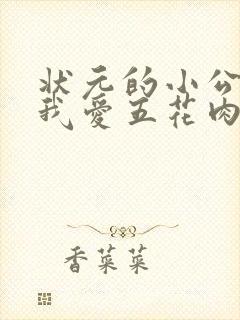 状元的小公
我爱五花肉
香菜菜